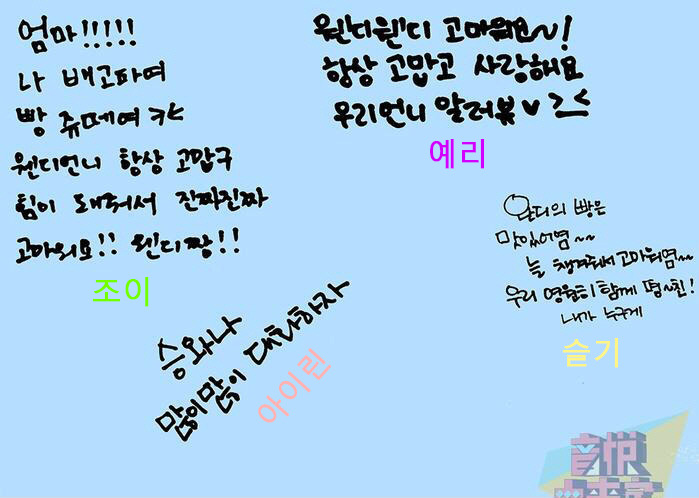 엄마!!!!!
나 배고파여
빵 쥬떼여 ㅋㅋ
웬디언니 항상 고맙구
힘이 돼줘서 진짜진짜
고마워요!! 웬디짱!!
조이
웬디웬디 고마워요~!
항상 고맙고 사랑해요
우리언니 알러뷰♥ >_<
예리
완디의 빵은
맛있어염~~
늘 챙겨줘서 고마워염~~
우리 영원히 함께 뿅~친!
내가 누구게
슬기
승완아
많이많이 대화하자
아이린
音悦